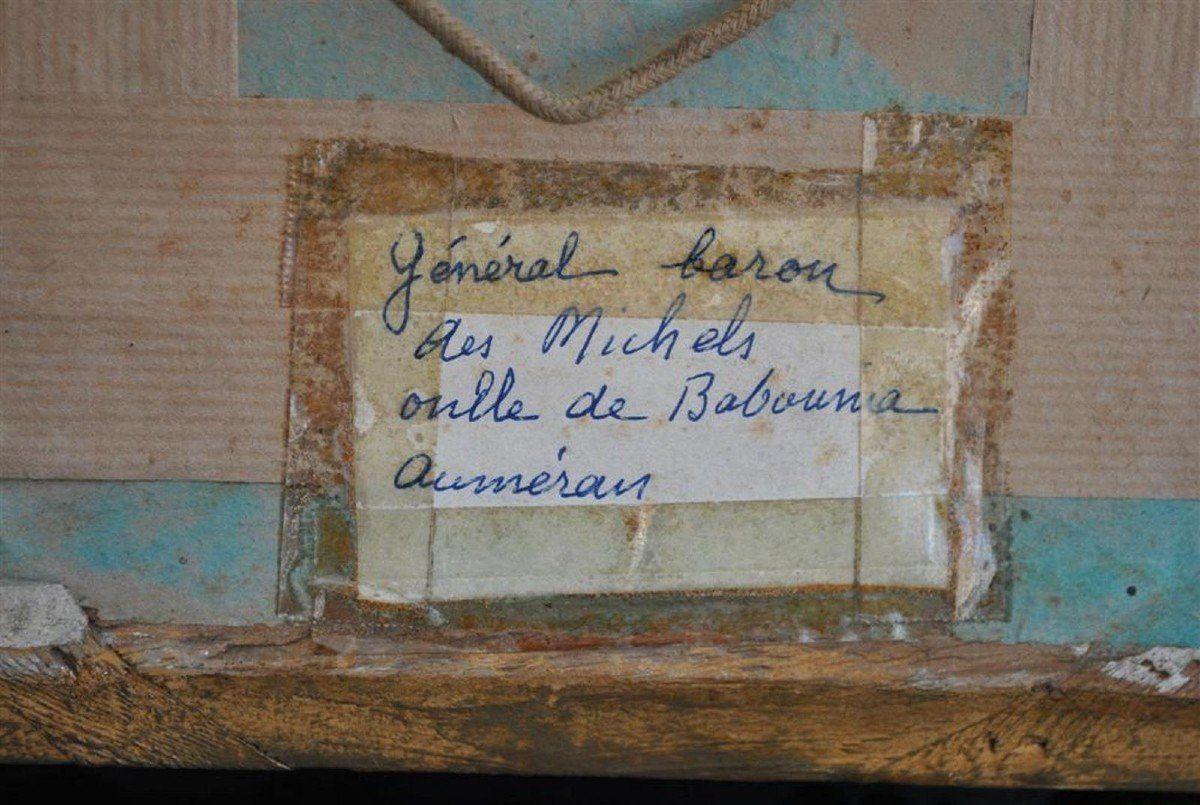 Général baron
des Michels
onlle de Babouna
Auméran